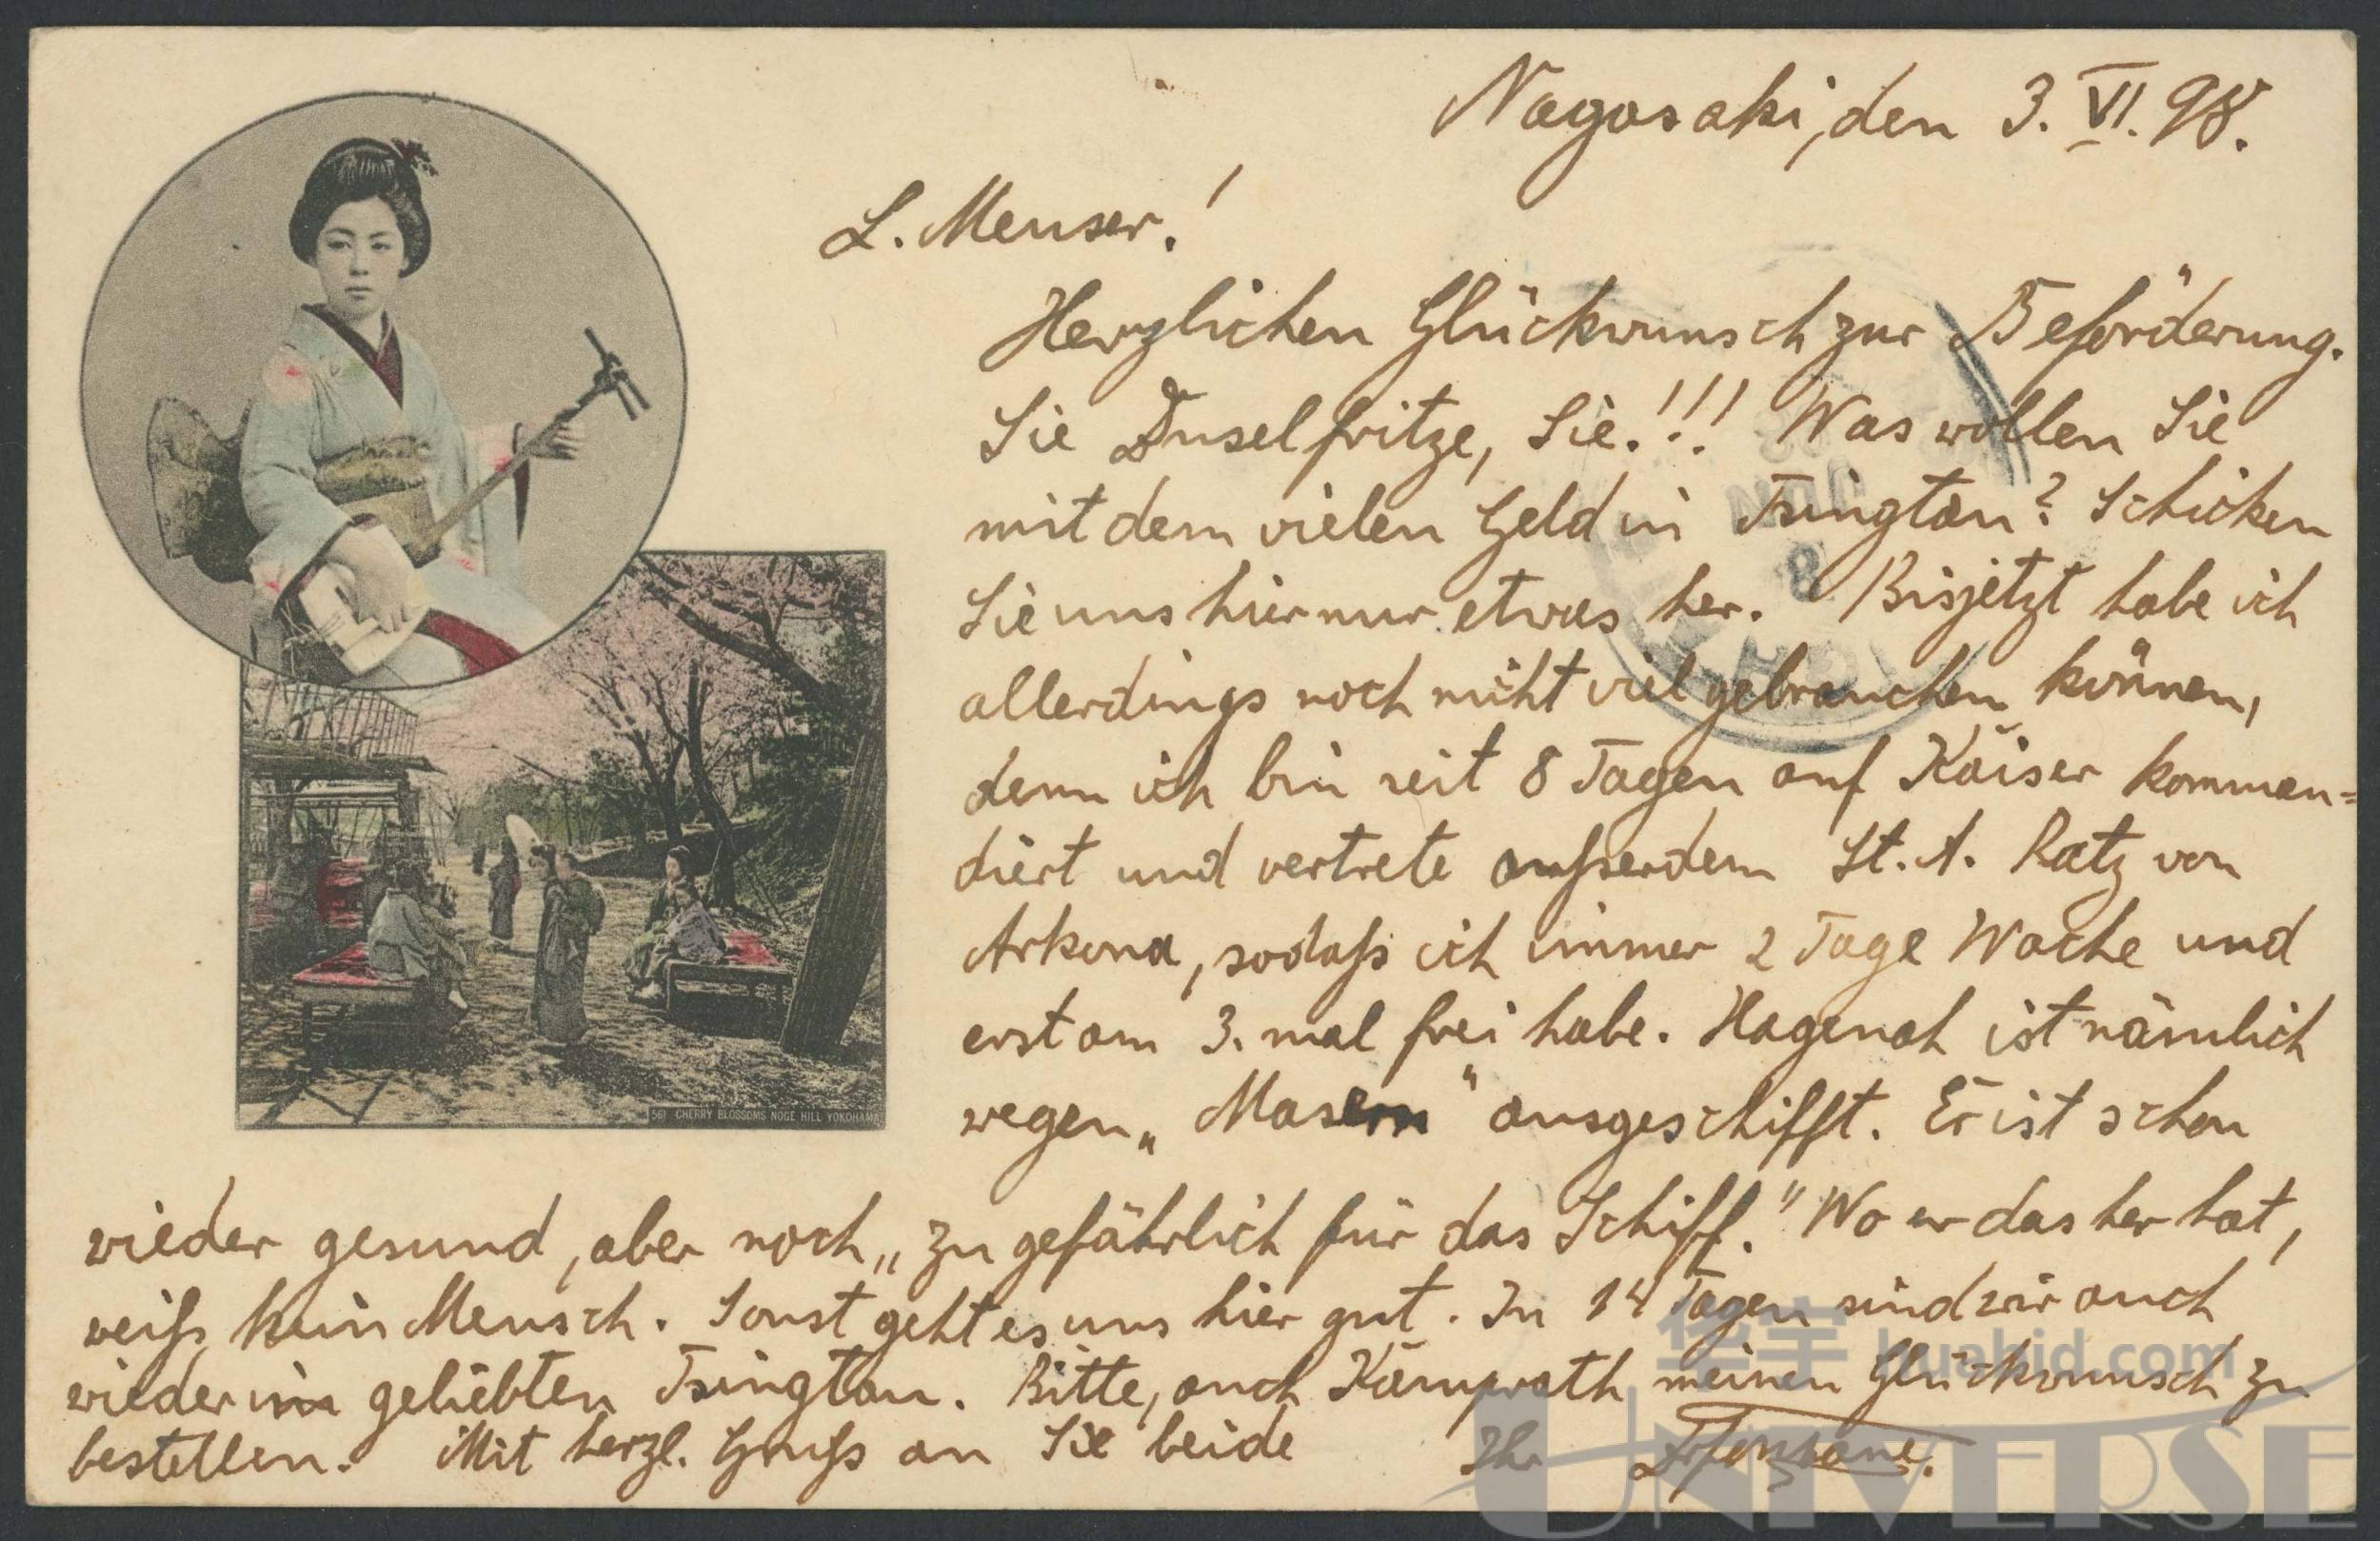 Nagasaki, den 3. VI. 98.
L. Menser!
Herzlichen Glückwunsch zur Beförderung.
Sie Duselfritze, Sie!!! Was wollen Sie
mit dem vielen Geld in Tsingtau? Schicken
Sie uns hier nur etwas her. Bisjetzt habe ich
allerdings noch nicht viel gebrauchen können,
denn ich bin seit 8 Tagen auf Kaiser komman=
diert und vertrete außerdem St. A. Ratz von
Arkona, sodaß ich immer 2 Tage Wache und
erst am 3. mal frei habe. Hagenah ist nämlich
wegen „Masern" ausgeschifft. Er ist schon
wieder gesund, aber noch „zu gefährlich für das Schiff." Wo er das her hat,
weiß kein Mensch. Sonst geht es uns hier gut. In 14 Tagen sind wir auch
wieder im geliebten Tsingtau. Bitte, auch Kämprath meinen Glückwunsch zu
bestellen. Mit herzl. Gruß an Sie beide Ihr
561 CHERRY BLOSSOMS NOGE HILL YOKOHAMA
JUN
98
华宇 huabid.com
UNIVERSE